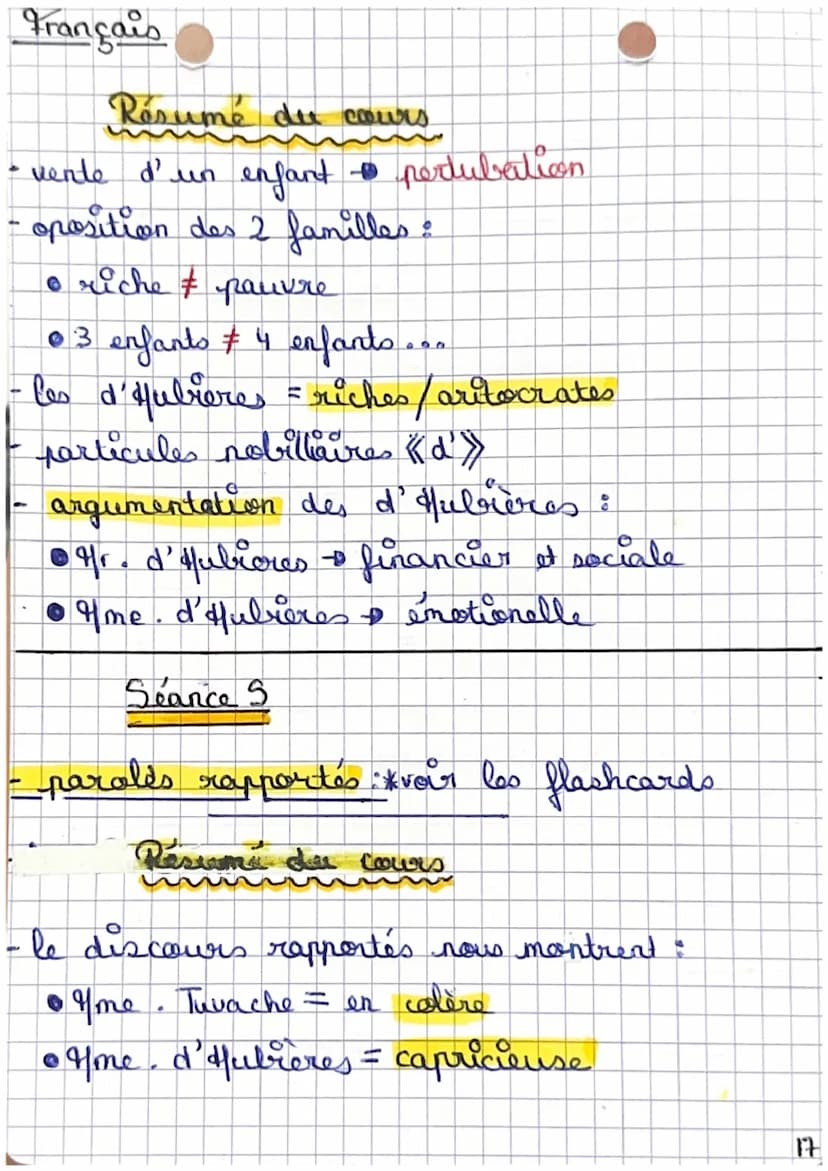 Français
Résumé du cours
- vente d'un enfant → pertubation
- oposition des 2 familles :
• riche ≠ pauvre
• 3 enfants ≠ 4 enfants...
- les d'Hubières = riches/aritocrates
- particules nobilliaires «d'»
- argumentation des d'Hubières :
• Mr. d'Hubières → financier et sociale
• Mme. d'Hubières → émotionelle
Séance 5
- paroles rapportés : *voir les flashcards
Résumé du cours
- le discours rapportés nous montrent :
• Mme. Tuvache = en colère
• Mme. d'Hubières = capricieuse
17